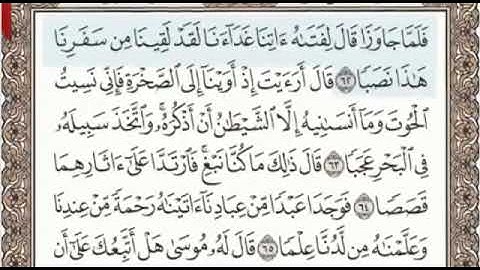 فَلَمَّا جَاوَزَا قَالَ لِفَتَىٰهُ ءَاتِنَا غَدَآءَنَا لَقَدْ لَقِينَا مِن سَفَرِنَا
هَٰذَا نَصَبًا ٦٢ قَالَ أَرَءَيْتَ إِذْ أَوَيْنَآ إِلَى ٱلصَّخْرَةِ فَإِنِّى نَسِيتُ
ٱلْحُوتَ وَمَآ أَنسَىٰنِيهُ إِلَّا ٱلشَّيْطَٰنُ أَنْ أَذْكُرَهُۥ ۚ وَٱتَّخَذَ سَبِيلَهُۥ
فِى ٱلْبَحْرِ عَجَبًا ٦٣ قَالَ ذَٰلِكَ مَا كُنَّا نَبْغِ ۚ فَٱرْتَدَّا عَلَىٰٓ ءَاثَارِهِمَا
قَصَصًا ٦٤ فَوَجَدَا عَبْدًا مِّنْ عِبَادِنَآ ءَاتَيْنَٰهُ رَحْمَةً مِّنْ عِندِنَا
وَعَلَّمْنَٰهُ مِن لَّدُنَّا عِلْمًا ٦٥ قَالَ لَهُۥ مُوسَىٰ هَلْ أَتَّبِعُكَ عَلَىٰٓ أَن